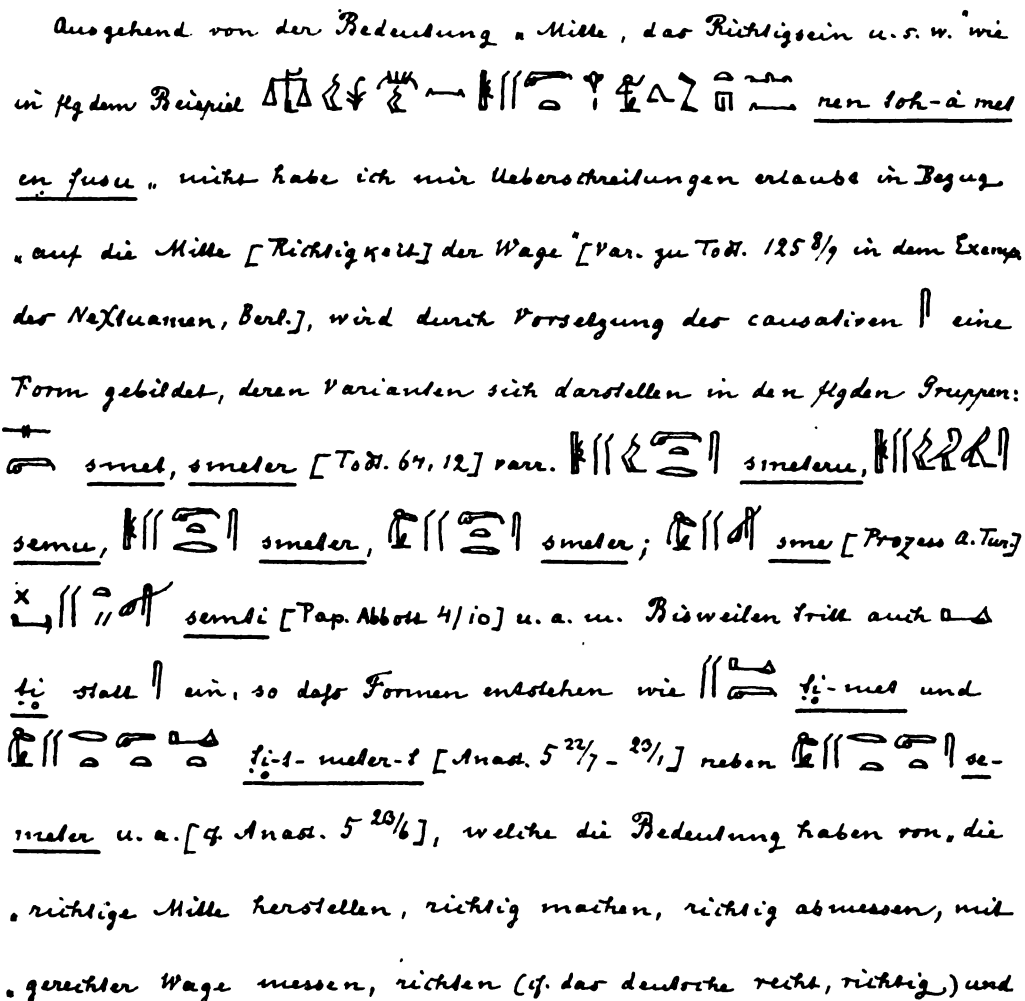 Ausgehend von der Bedeutung „Mitte, das Richtigsein u. s. w." wie
in flgdem Beispiel nen toh-à met
en fusu „nicht habe ich mir Ueberschreitungen erlaubt in Bezug
„auf die Mitte [Richtigkeit] der Wage" [Var. zu Todt. 125 8/9 in dem Exemp.
des Neχtuamen, Berl.], wird durch Vorsetzung des causativen eine
Form gebildet, deren Varianten sich darstellen in den flgden Gruppen:
smet, smeter [Todt. 64, 12] varr. smeteru,
semu, smeter, smeter; sme [Prozess a. Tur.]
semti [Pap. Abbott 4/10] u. a. m. Bisweilen tritt auch
ṭi statt ein, so dass Formen entstehen wie ṭi-met und
ṭi-t-meter-t [Anast. 5 22/7 – 23/1] neben se-
meter u. a. [cf. Anast. 5 23/6], welche die Bedeutung haben von „die
„richtige Mitte herstellen, richtig machen, richtig abmessen, mit
„gerechter Wage messen, richten (cf. das deutsche recht, richtig) und